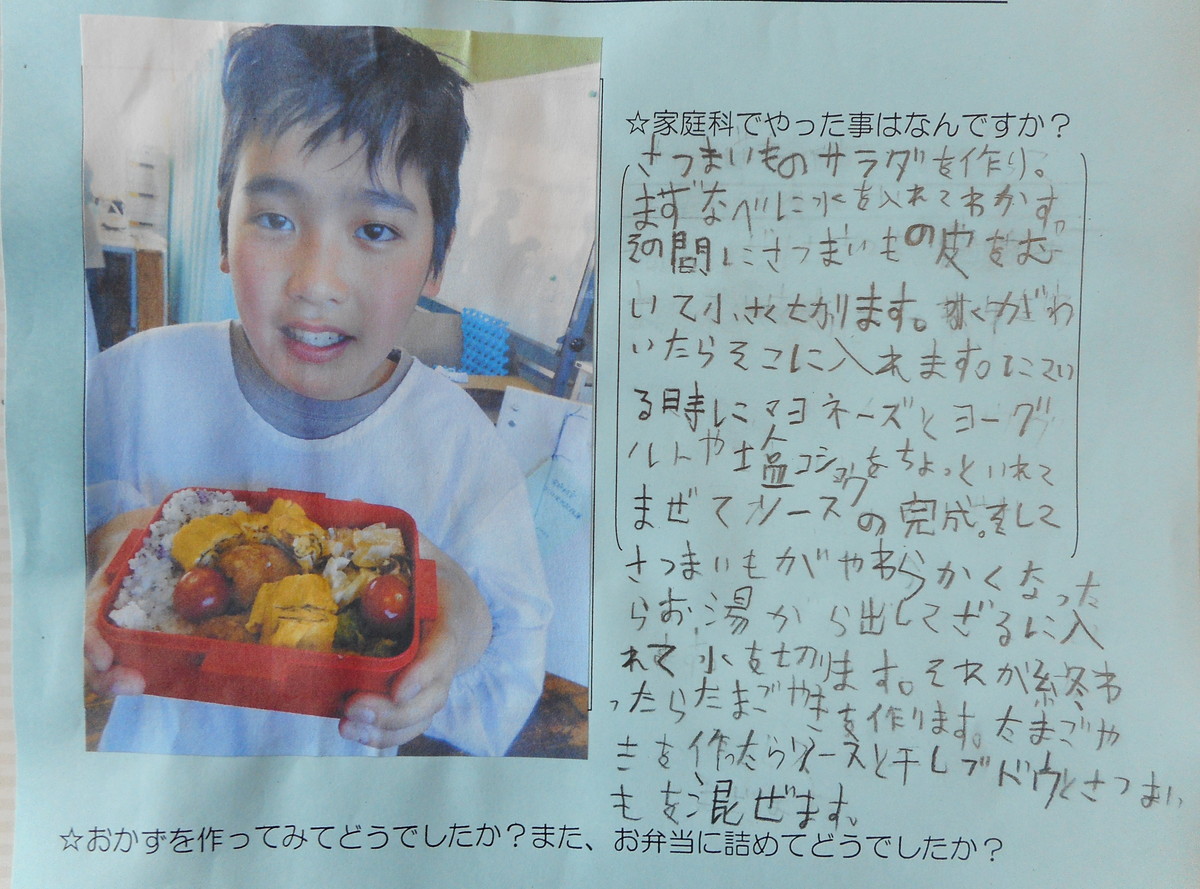 ☆家庭科でやった事はなんですか？
さつまいものサラダを作り。
まずなべに水を入れてわかす。
その間にさつまいもの皮をむ
いて小さく切ります。水がわ
いたらそこに入れます。にてい
る時にマヨネーズとヨーグ
ルトや塩コショウをちょっといれて
まぜてソースの完成。をして
さつまいもがやわらかくなった
らお湯から出してざるに入
れて水を切ります。それが終わ
ったらたまごやきを作ります。たまごや
きを作ったらソースと干しブドウとさつまい
もを混ぜます。
☆おかずを作ってみてどうでしたか？また、お弁当に詰めてどうでしたか？